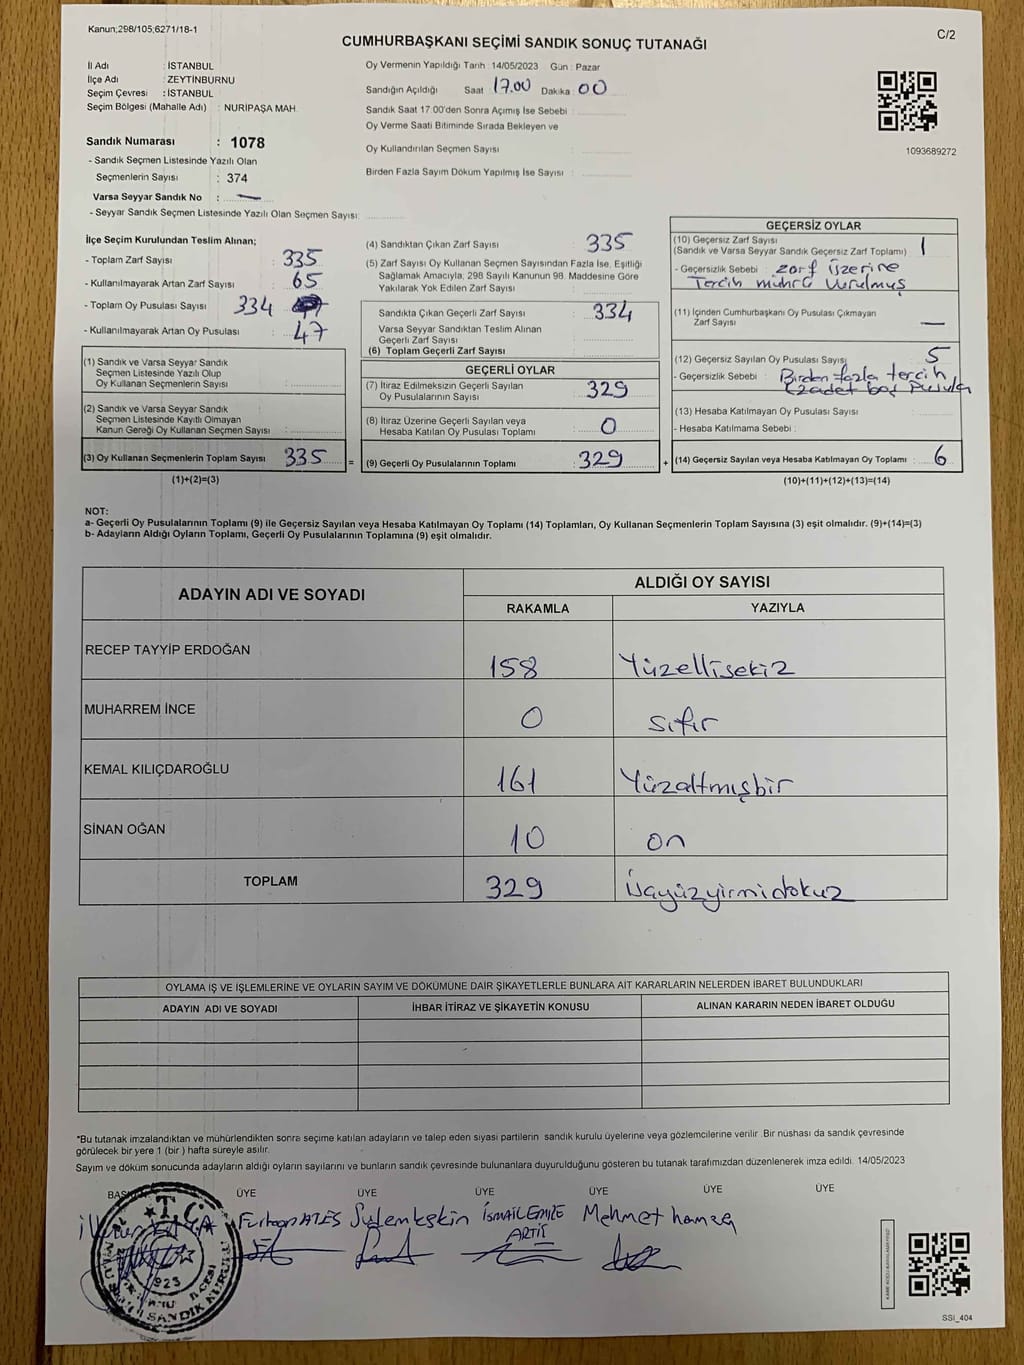 Kanun;298/105;6271/18-1
C/2
CUMHURBAŞKANI SEÇİMİ SANDIK SONUÇ TUTANAĞI
İl Adı : İSTANBUL
İlçe Adı : ZEYTİNBURNU
Seçim Çevresi : İSTANBUL
Seçim Bölgesi (Mahalle Adı) : NURİPAŞA MAH.
Sandık Numarası : 1078
- Sandık Seçmen Listesinde Yazılı Olan
Seçmenlerin Sayısı : 374
Varsa Seyyar Sandık No : —
- Seyyar Sandık Seçmen Listesinde Yazılı Olan Seçmen Sayısı:
Oy Vermenin Yapıldığı Tarih : 14/05/2023 Gün : Pazar
Sandığın Açıldığı Saat : 17.00 Dakika : 00
Sandık Saat 17:00'den Sonra Açımış İse Sebebi :
Oy Verme Saati Bitiminde Sırada Bekleyen ve
Oy Kullandırılan Seçmen Sayısı :
Birden Fazla Sayım Döküm Yapılmış İse Sayısı :
1093689272
İlçe Seçim Kurulundan Teslim Alınan;
- Toplam Zarf Sayısı : 335
- Kullanılmayarak Artan Zarf Sayısı : 65
- Toplam Oy Pusulası Sayısı 334
- Kullanılmayarak Artan Oy Pusulası : 47
(1) Sandık ve Varsa Seyyar Sandık
Seçmen Listesinde Yazılı Olup
Oy Kullanan Seçmenlerin Sayısı :
(2) Sandık ve Varsa Seyyar Sandık
Seçmen Listesinde Kayıtlı Olmayan
Kanun Gereği Oy Kullanan Seçmen Sayısı :
(3) Oy Kullanan Seçmenlerin Toplam Sayısı : 335 =
(1)+(2)=(3)
(4) Sandıktan Çıkan Zarf Sayısı : 335
(5) Zarf Sayısı Oy Kullanan Seçmen Sayısından Fazla İse, Eşitliği
Sağlamak Amacıyla, 298 Sayılı Kanunun 98. Maddesine Göre
Yakılarak Yok Edilen Zarf Sayısı :
Sandıkta Çıkan Geçerli Zarf Sayısı : 334
Varsa Seyyar Sandıktan Teslim Alınan
Geçerli Zarf Sayısı :
(6) Toplam Geçerli Zarf Sayısı :
GEÇERLİ OYLAR
(7) İtiraz Edilmeksizin Geçerli Sayılan
Oy Pusulalarının Sayısı : 329
(8) İtiraz Üzerine Geçerli Sayılan veya
Hesaba Katılan Oy Pusulası Toplamı : 0
(9) Geçerli Oy Pusulalarının Toplamı : 329 +
GEÇERSİZ OYLAR
(10) Geçersiz Zarf Sayısı
(Sandık ve Varsa Seyyar Sandık Geçersiz Zarf Toplamı) : 1
- Geçersizlik Sebebi : zarf üzerine
Tercih mührü vurulmuş
(11) İçinden Cumhurbaşkanı Oy Pusulası Çıkmayan
Zarf Sayısı : —
(12) Geçersiz Sayılan Oy Pusulası Sayısı : 5
- Geçersizlik Sebebi : Birden fazla tercih
boş Pusula
(13) Hesaba Katılmayan Oy Pusulası Sayısı :
- Hesaba Katılmama Sebebi :
(14) Geçersiz Sayılan veya Hesaba Katılmayan Oy Toplamı : 6
(10)+(11)+(12)+(13)=(14)
NOT:
a- Geçerli Oy Pusulalarının Toplamı (9) ile Geçersiz Sayılan veya Hesaba Katılmayan Oy Toplamı (14) Toplamları, Oy Kullanan Seçmenlerin Toplam Sayısına (3) eşit olmalıdır. (9)+(14)=(3)
b- Adayların Aldığı Oyların Toplamı, Geçerli Oy Pusulalarının Toplamına (9) eşit olmalıdır.
ADAYIN ADI VE SOYADI ALDIĞI OY SAYISI
RAKAMLA YAZIYLA
RECEP TAYYİP ERDOĞAN 158 Yüzellisekiz
MUHARREM İNCE 0 sıfır
KEMAL KILIÇDAROĞLU 161 Yüzaltmışbir
SİNAN OĞAN 10 on
TOPLAM 329 Üçyüzyirmidokuz
OYLAMA İŞ VE İŞLEMLERİNE VE OYLARIN SAYIM VE DÖKÜMÜNE DAİR ŞİKAYETLERLE BUNLARA AİT KARARLARIN NELERDEN İBARET BULUNDUKLARI
ADAYIN ADI VE SOYADI İHBAR İTİRAZ VE ŞİKAYETİN KONUSU ALINAN KARARIN NEDEN İBARET OLDUĞU
*Bu tutanak imzalandıktan ve mühürlendikten sonra seçime katılan adayların ve talep eden siyasi partilerin sandık kurulu üyelerine veya gözlemcilerine verilir. Bir nüshası da sandık çevresinde
görülecek bir yere 1 (bir) hafta süreyle asılır.
Sayım ve döküm sonucunda adayların aldığı oyların sayılarını ve bunların sandık çevresinde bulunanlara duyurulduğunu gösteren bu tutanak tarafımızdan düzenlenerek imza edildi. 14/05/2023
ÜYE ÜYE ÜYE ÜYE ÜYE ÜYE
ATEŞ İSMAİL EMRE Mehmet hamza
ARTIŞ
T.C.
SANDIK KURULU
SSI_404